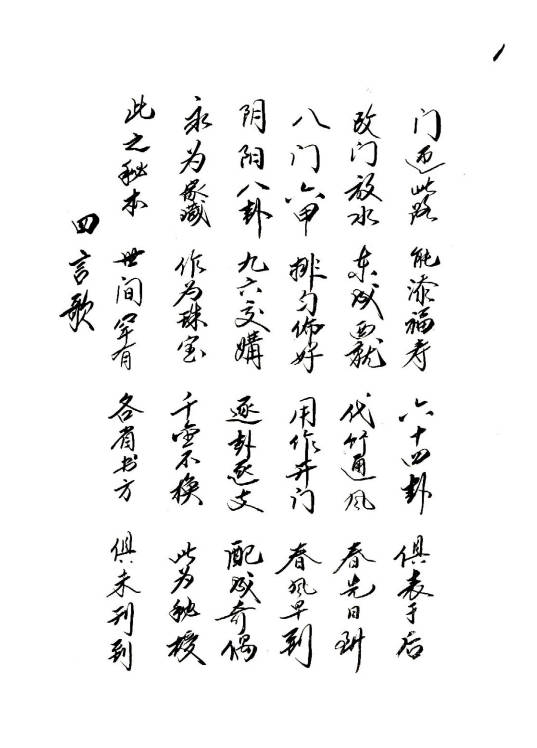 1
四言歌
此之秘本 世间罕有 各省书方 俱未刊到
永为家藏 作为珠宝 千金不换 此为秘授
阴阳八卦 九六交媾 逐卦逐支 配成奇偶
八门六甲 排匀佈好 用作开门 春风早到
改门放水 东成西就 代竹通风 春先日
门迎此路 能添福寿 六十四卦 俱表于后